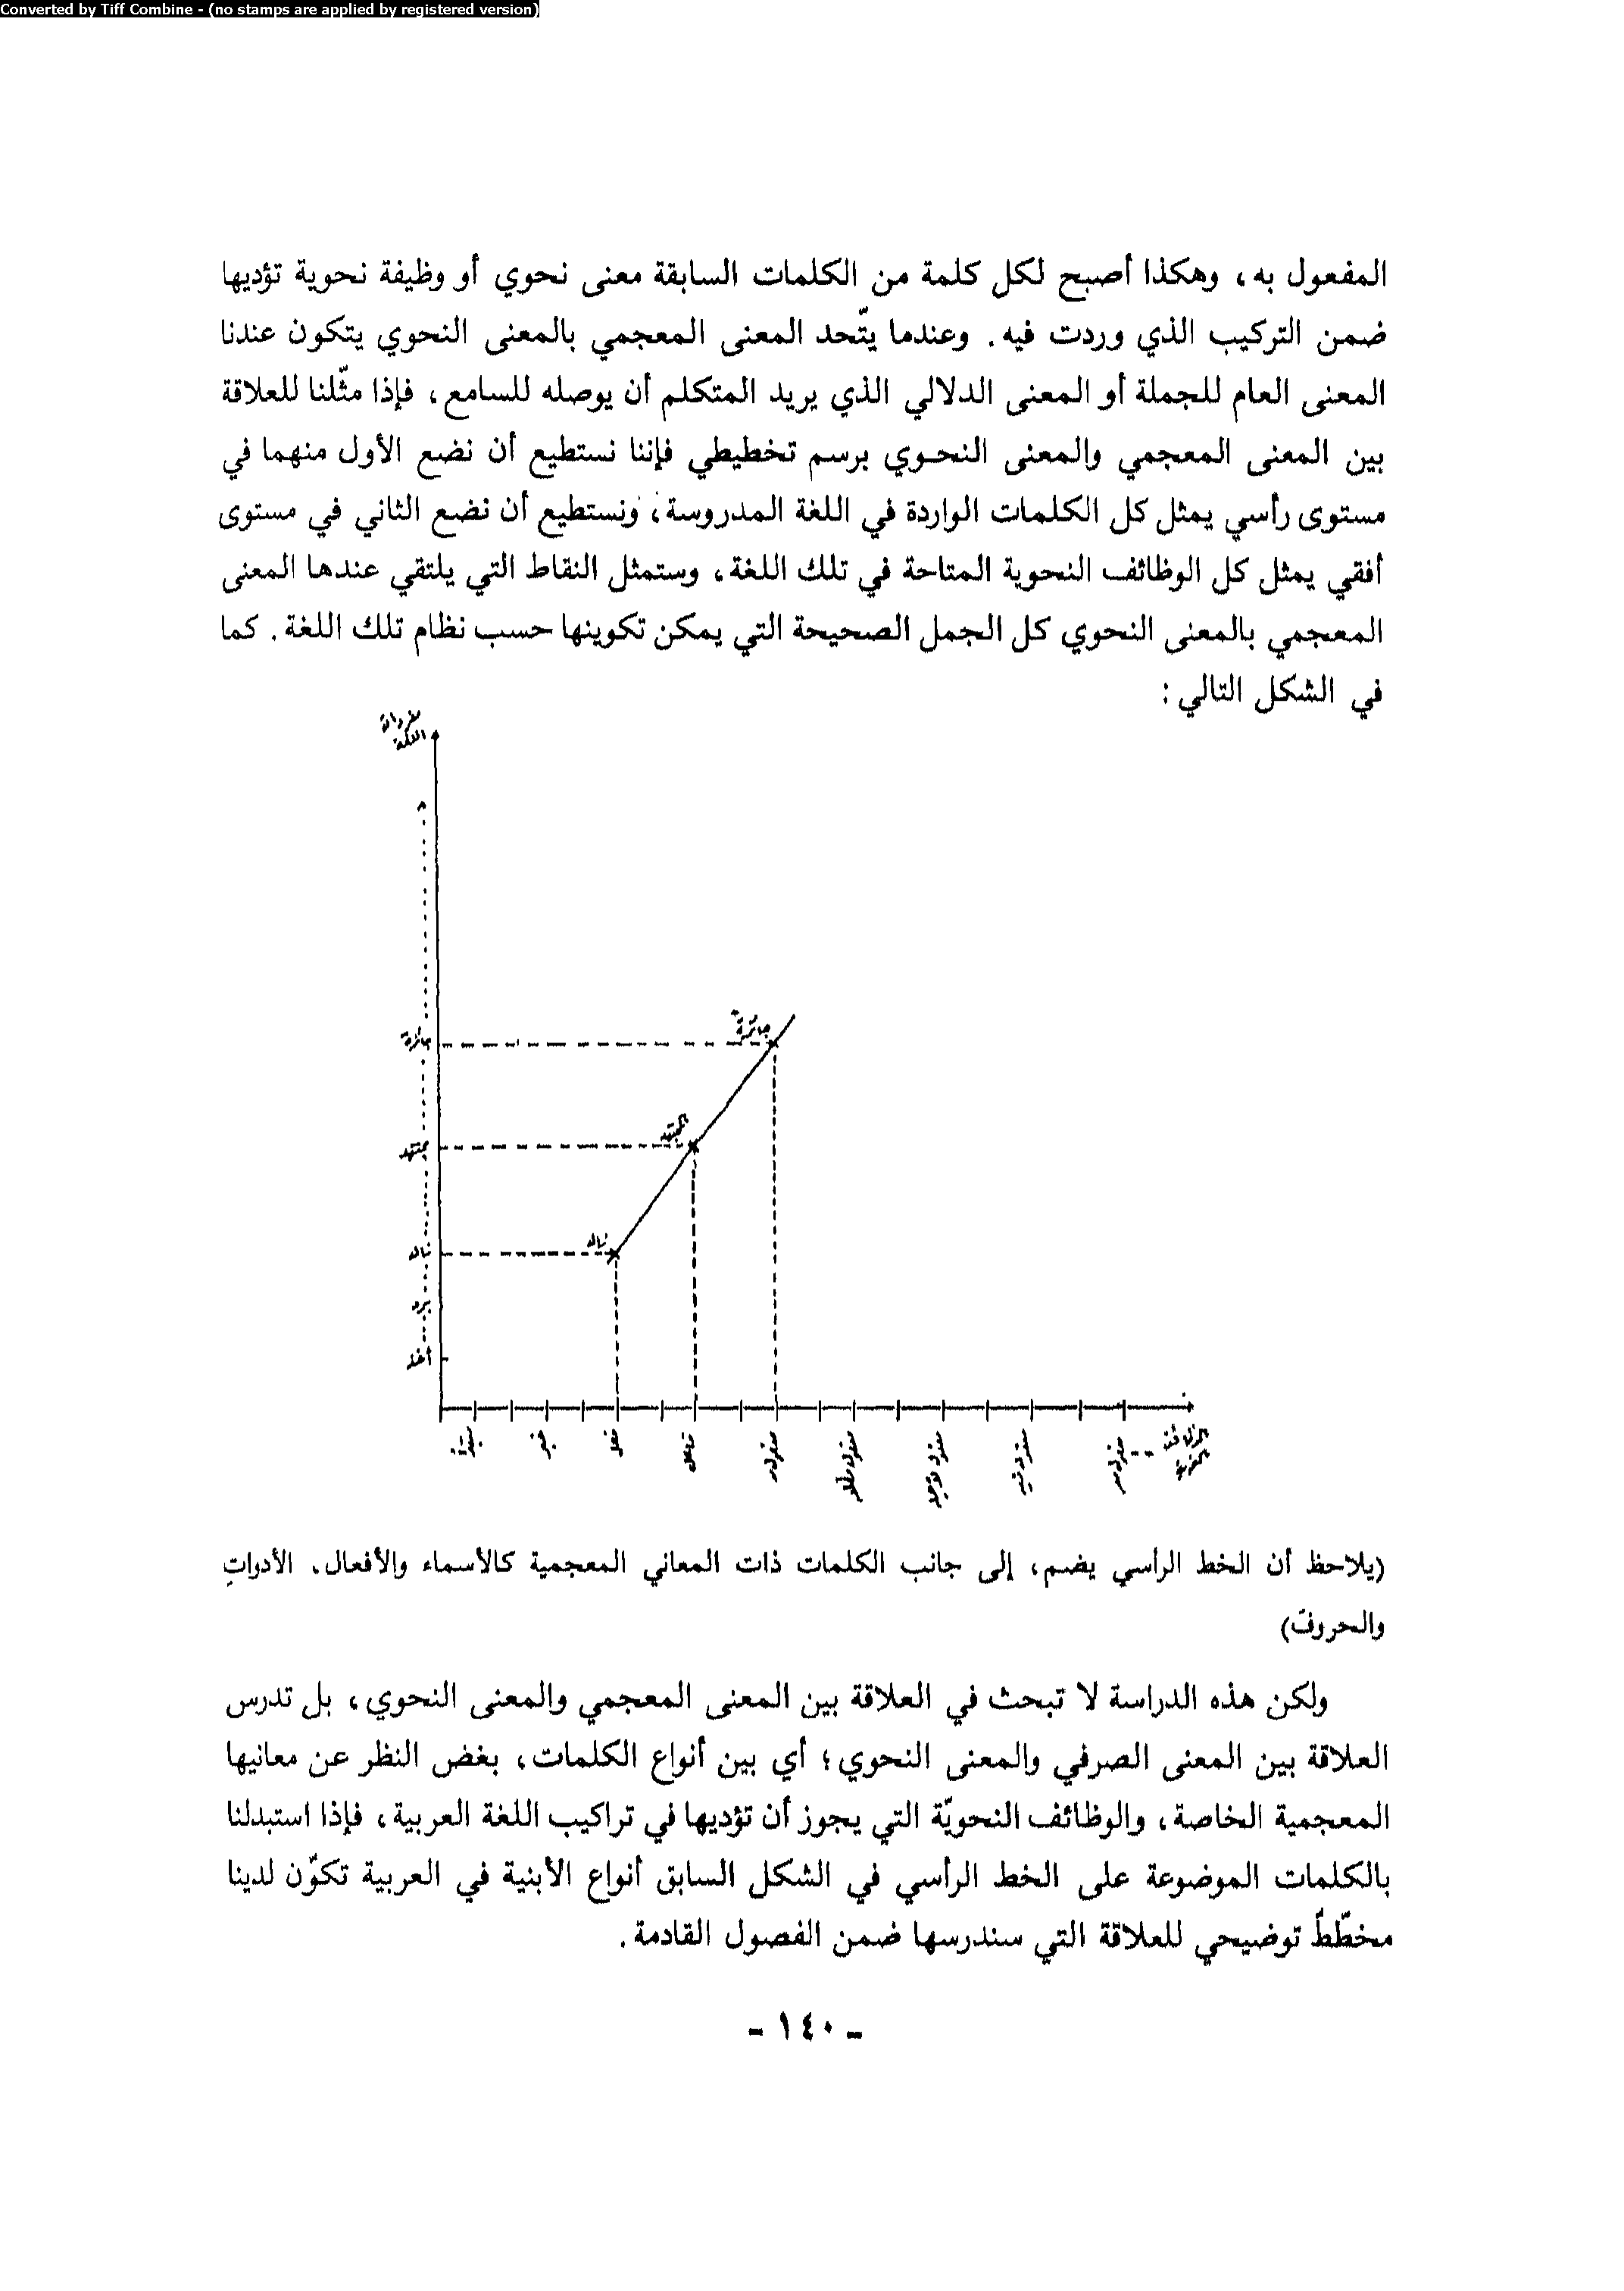 Converted by Tiff Combine - (no stamps are applied by registered version)
المفعول به، وهكذا أصبح لكل كلمة من الكلمات السابقة معنى نحوي أو وظيفة نحوية تؤديها
ضمن التركيب الذي وردت فيه. وعندما يتّحد المعنى المعجمي بالمعنى النحوي يتكون عندنا
المعنى العام للجملة أو المعنى الدلالي الذي يريد المتكلم أن يوصله للسامع، فإذا مثّلنا للعلاقة
بين المعنى المعجمي والمعنى النحوي برسم تخطيطي فإننا نستطيع أن نضع الأول منهما في
مستوى رأسي يمثل كل الكلمات الواردة في اللغة المدروسة، ونستطيع أن نضع الثاني في مستوى
أفقي يمثل كل الوظائف النحوية المتاحة في تلك اللغة، وستمثل النقاط التي يلتقي عندها المعنى
المعجمي بالمعنى النحوي كل الجمل الصحيحة التي يمكن تكوينها حسب نظام تلك اللغة. كما
في الشكل التالي :
مفردات
اللغة
جائزة
جائزة
المجتهد
مجتهد
نال
نال
أخذ
مبتدأ
خبر
فعل
فاعل
مفعول به
مفعول مطلق
مفعول لأجله
مفعول فيه
مفعول معه
الوظائف
النحوية
(يلاحظ أن الخط الرأسي يضم، إلى جانب الكلمات ذات المعاني المعجمية كالأسماء والأفعال. الأدواتِ
والحروفَ)
ولكن هذه الدراسة لا تبحث في العلاقة بين المعنى المعجمي والمعنى النحوي، بل تدرس
العلاقة بين المعنى الصرفي والمعنى النحوي؛ أي بين أنواع الكلمات، بغض النظر عن معانيها
المعجمية الخاصة، والوظائف النحويّة التي يجوز أن تؤديها في تراكيب اللغة العربية، فإذا استبدلنا
بالكلمات الموضوعة على الخط الرأسي في الشكل السابق أنواع الأبنية في العربية تكوّن لدينا
مخطّطٌ توضيحي للعلاقة التي سندرسها ضمن الفصول القادمة.
- ١٤٠ -